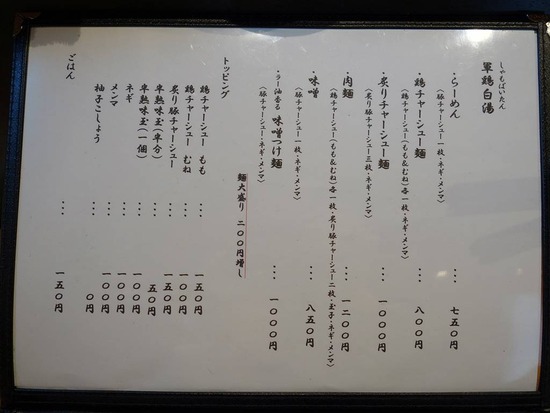 しゃもぱいたん
軍鶏白湯
・らーめん ・・・ 七五〇円
(豚チャーシュー一枚・ネギ・メンマ)
・鶏チャーシュー麺 ・・・ 八〇〇円
(鶏チャーシュー(もも&むね)各一枚・ネギ・メンマ)
・炙りチャーシュー麺 ・・・ 一〇〇〇円
(炙り豚チャーシュー三枚・ネギ・メンマ)
・肉麺 ・・・ 一二〇〇円
(鶏チャーシュー(もも&むね)各一枚・炙り豚チャーシュー二枚・玉子・ネギ・メンマ)
・味噌 ・・・ 八五〇円
(豚チャーシュー一枚・ネギ・メンマ)
・ラー油香る 味噌つけ麺 ・・・ 一〇〇〇円
(豚チャーシュー・ネギ・メンマ)
麺大盛り 二〇〇円増し
トッピング
鶏チャーシュー もも ・・・ 一五〇円
鶏チャーシュー むね ・・・ 一〇〇円
炙り豚チャーシュー ・・・ 一五〇円
半熟味玉(半分) ・・・ 五〇円
半熟味玉(一個) ・・・ 一〇〇円
ネギ ・・・ 一〇〇円
メンマ ・・・ 一〇〇円
柚子こしょう ・・・ 〇円
ごはん ・・・ 一五〇円